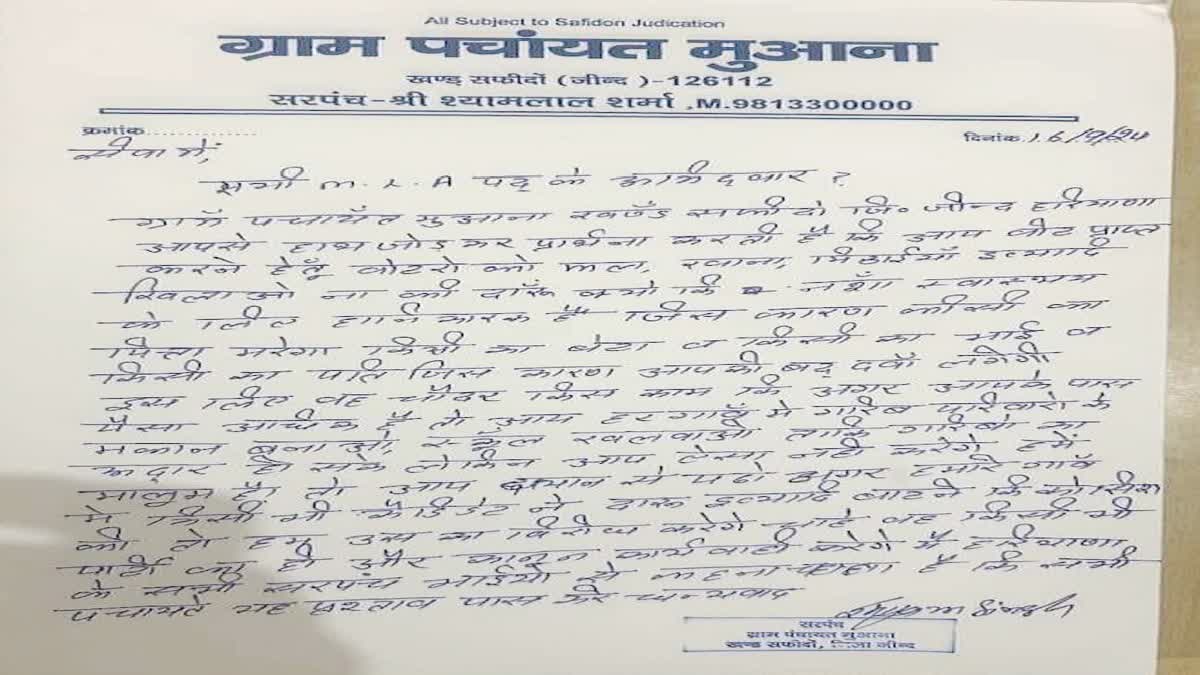 All Subject to Safidon Judication
ग्राम पचांयत मुआना
खण्ड सफीदों (जीन्द )-126112
सरपंच-श्री श्यामलाल शर्मा ,M.9813300000
क्रमांक..............
दिनांक.16/9/24
सेवा में,
सभी M.L.A पद के
ग्राम पन्चायत मुआना खण्ड सफीदो जि० जीन्द हरियाणा
आपसे हाथ जोड कर प्रार्थना करती है कि आप वोट प्राप्त
करने हेतू वोटरो को फल, खाना, मिठाईयाँ इत्यादि
खिलाओ ना की दारू क्यो कि नशा स्वास्थय
के लिए हानि कारक है जिस कारण कीसी का
पिता मरेगा किसी का बेटा व किसी का भाई व
किसी का पति जिस कारण आपकी बद दवाँ लगेगी
इस लिए वह चौदर किस काम कि अगर आपके पास
पैसा अधिक है तो आप हर गाँव मे गरिब परिवारो के
मकान बनाओ, स्कूल खुलवाओ ताकि गरिबो का
हो सके लेकिन आप ऐसा नही करेगे हमें
मालुम है। तो आप ध्यान से पढो अगर हमारे गाँव
मे किसी भी कैंडिडेट ने दारू इत्यादि बाटने कि कोशिश
की तो हम उस का विरोध करेगे चाहे वह किसी भी
पार्टी का हो और कानून कार्यवाही करेगे मैं हरियाणा
के सभी सरपंच भाईयो से कहना चाहता है कि सभी
पन्चायते यह प्रस्ताव पास करे धन्यवाद
सरपंच
ग्राम पंचायत मुआना
खण्ड सफीदों, जिला जीन्द